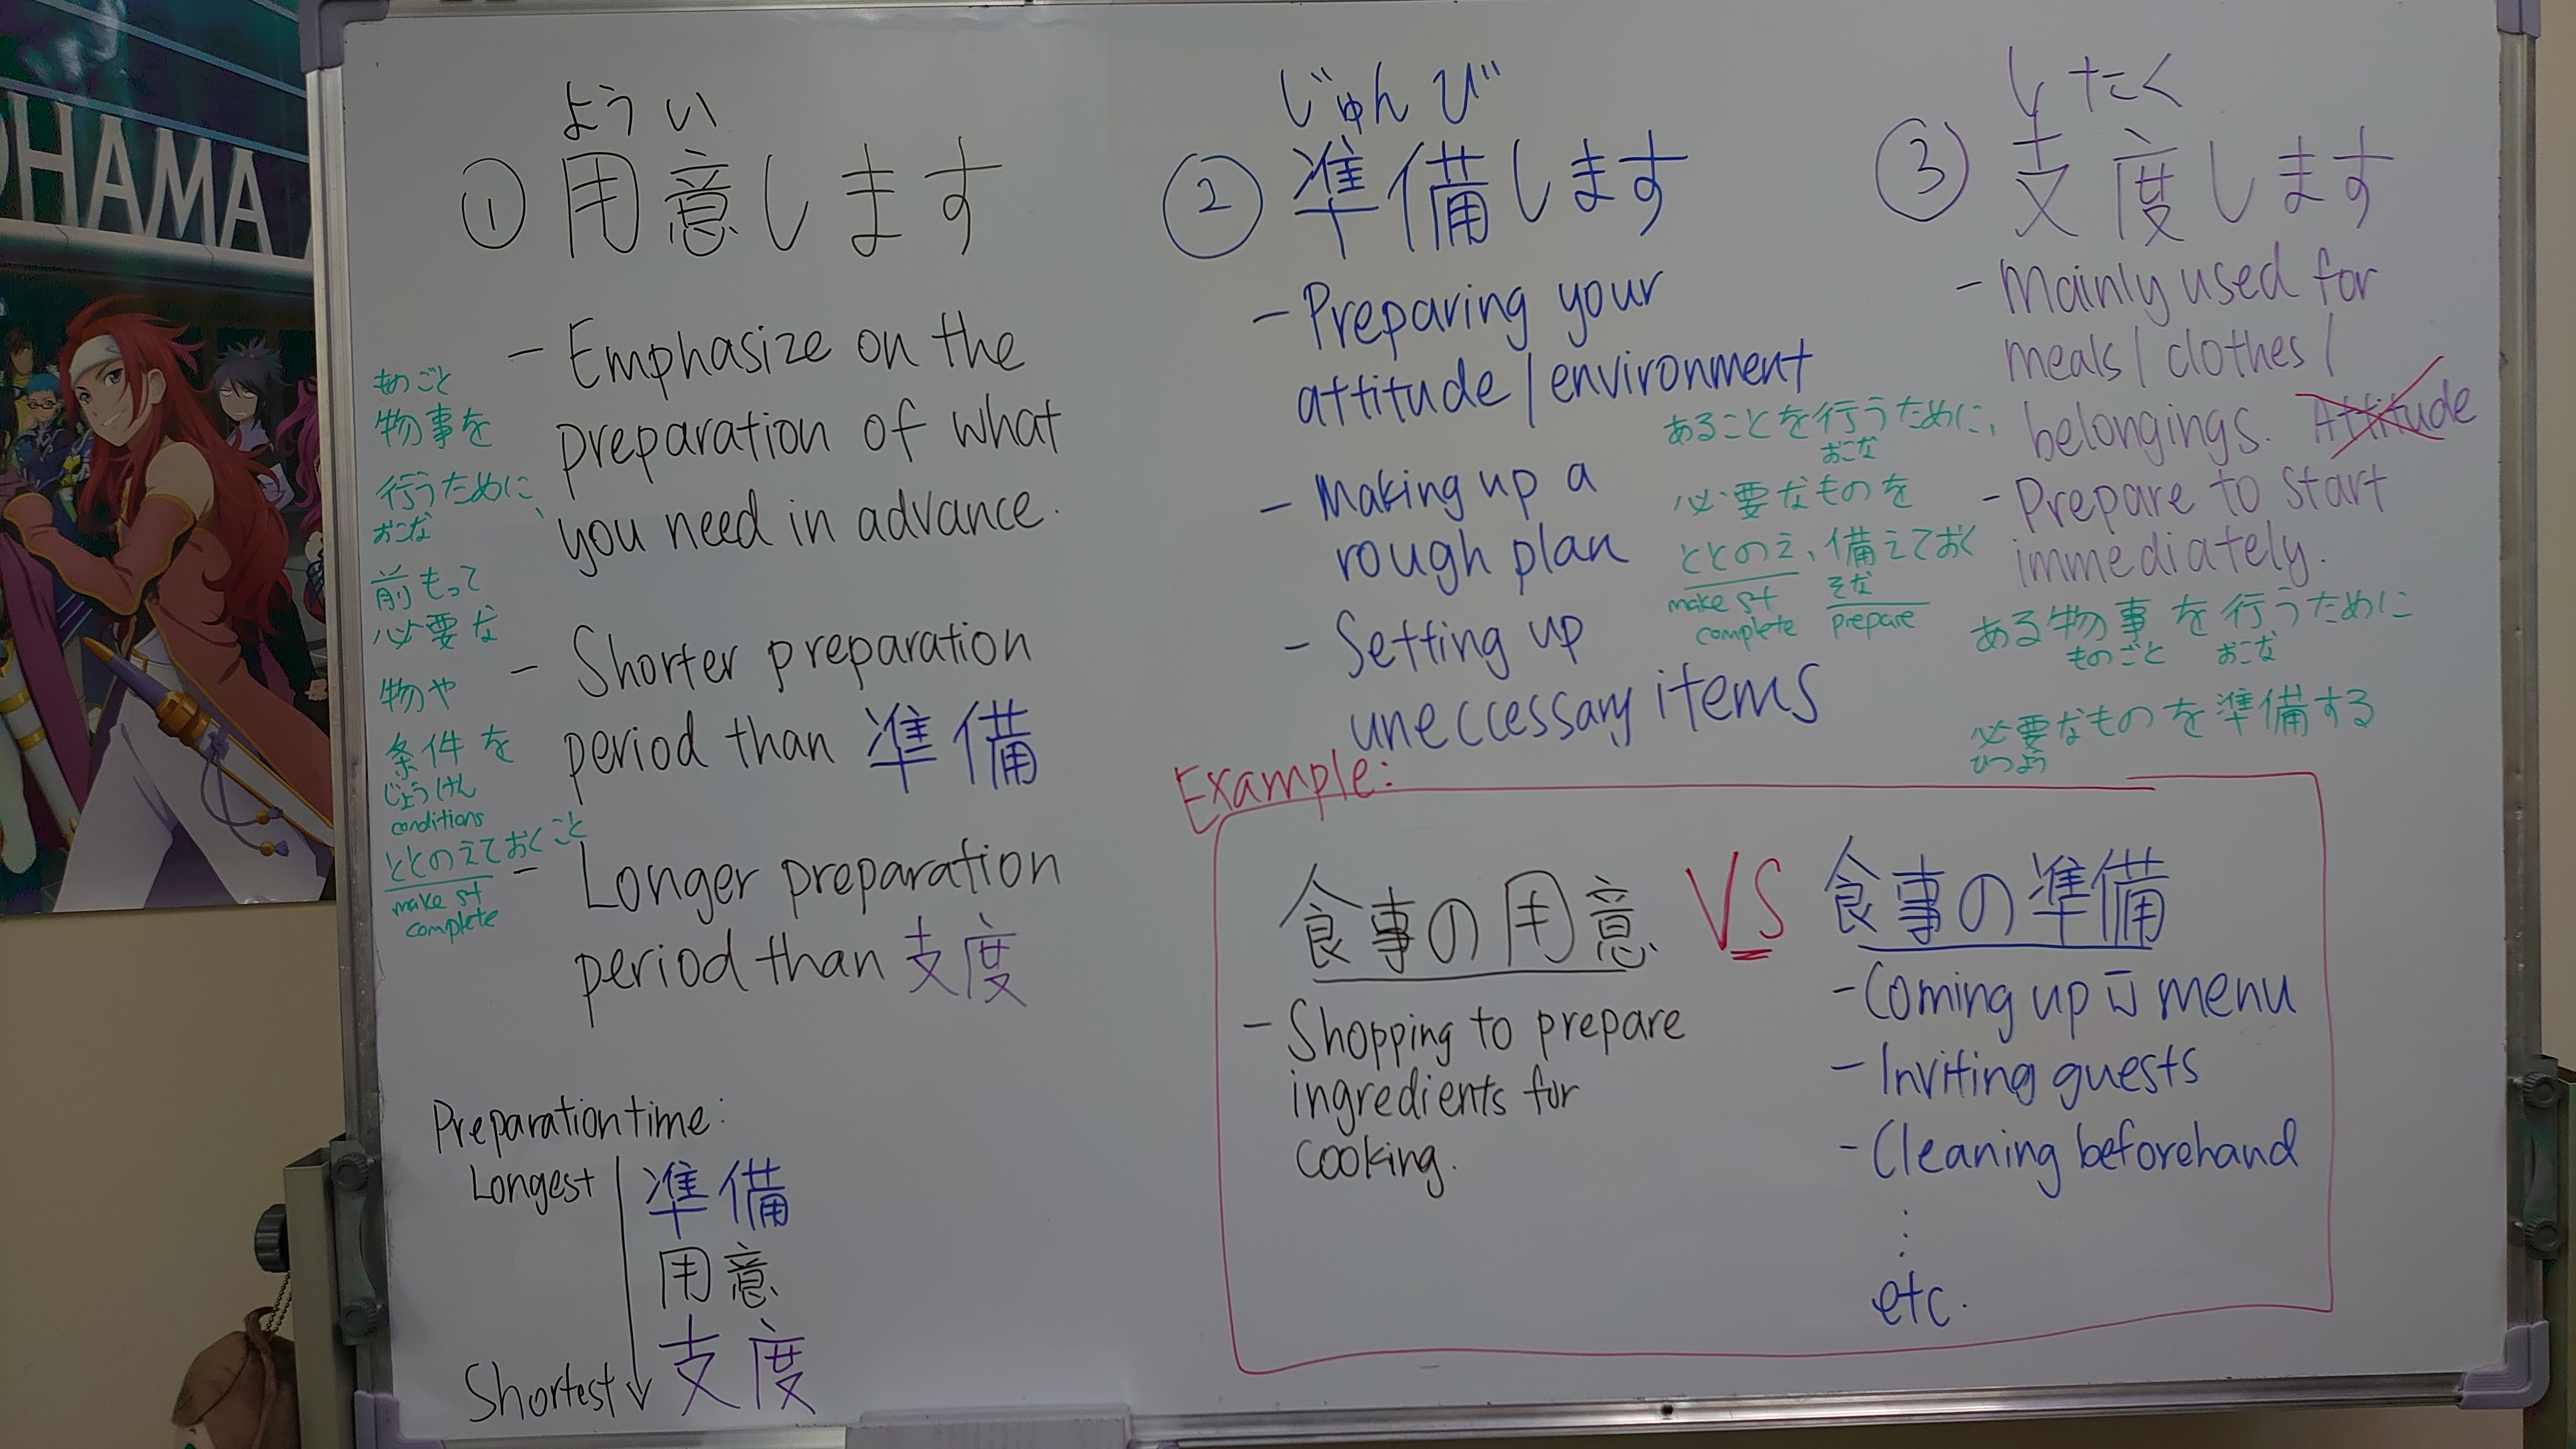 OHAMA
ようい
① 用意します
- Emphasize on the
preparation of what
you need in advance.
- Shorter preparation
period than 準備
- Longer preparation
period than 支度
ものごと
物事を
行うために、
おこな
前もって
必要な
物や
条件を
じょうけん
conditions
ととのえておくこと
make st
complete
Preparation time:
Longest
準備
用意
支度
Shortest
じゅんび
② 準備します
- Preparing your
attitude / environment
- Making up a
rough plan
- Setting up
uneccessary items
あることを行うために、
おこな
必要なものを
ととのえ、備えておく
そな
make st
complete
prepare
したく
③ 支度します
- Mainly used for
meals / clothes /
belongings. Attitude
- Prepare to start
immediately.
ある物事を行うために
ものごと おこな
必要なものを準備する
ひつよう
Example:
食事の用意 VS 食事の準備
- Shopping to prepare
ingredients for
cooking.
- Coming up w̄ menu
- Inviting guests
- Cleaning beforehand
⋮
etc.